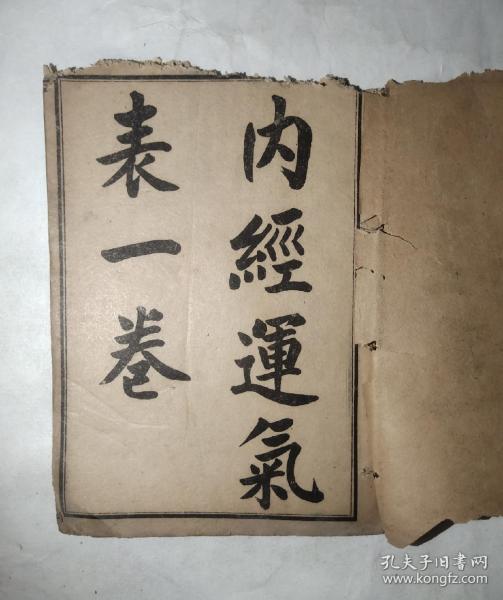 内經運氣
表一卷
孔夫子旧书网
www.kongfz.com